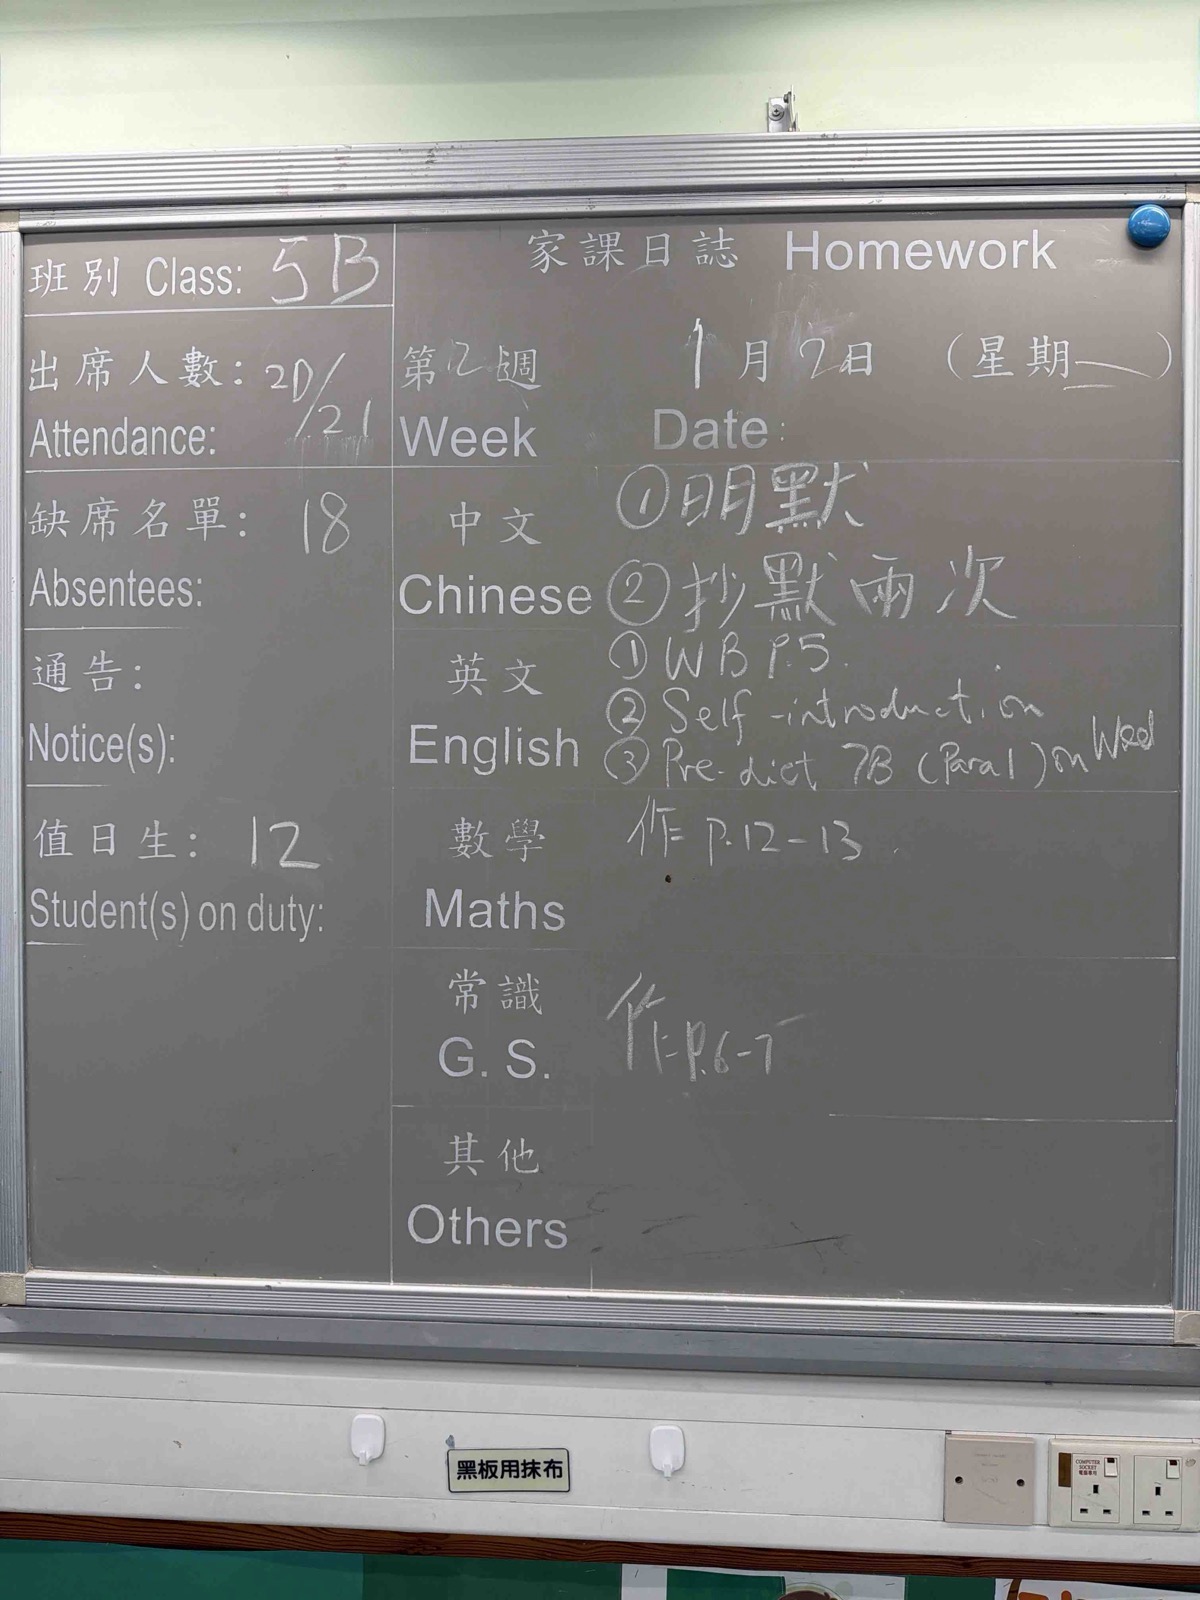 班別 Class: 5B
出席人數: 20/21
Attendance:
缺席名單: 18
Absentees:
通告:
Notice(s):
值日生: 12
Student(s) on duty:
家課日誌 Homework
第2週 1月2日 (星期一)
Week Date:
中文 ①明默
Chinese ②抄默兩次
英文 ①WB P.5.
②Self-introduction
English ③Pre-dict 7B (Para 1) on Wed
數學 作 P.12-13.
Maths
常識
G. S. 作P.6-7
其他
Others
黑板用抹布
COMPUTER
SOCKET
電腦專用